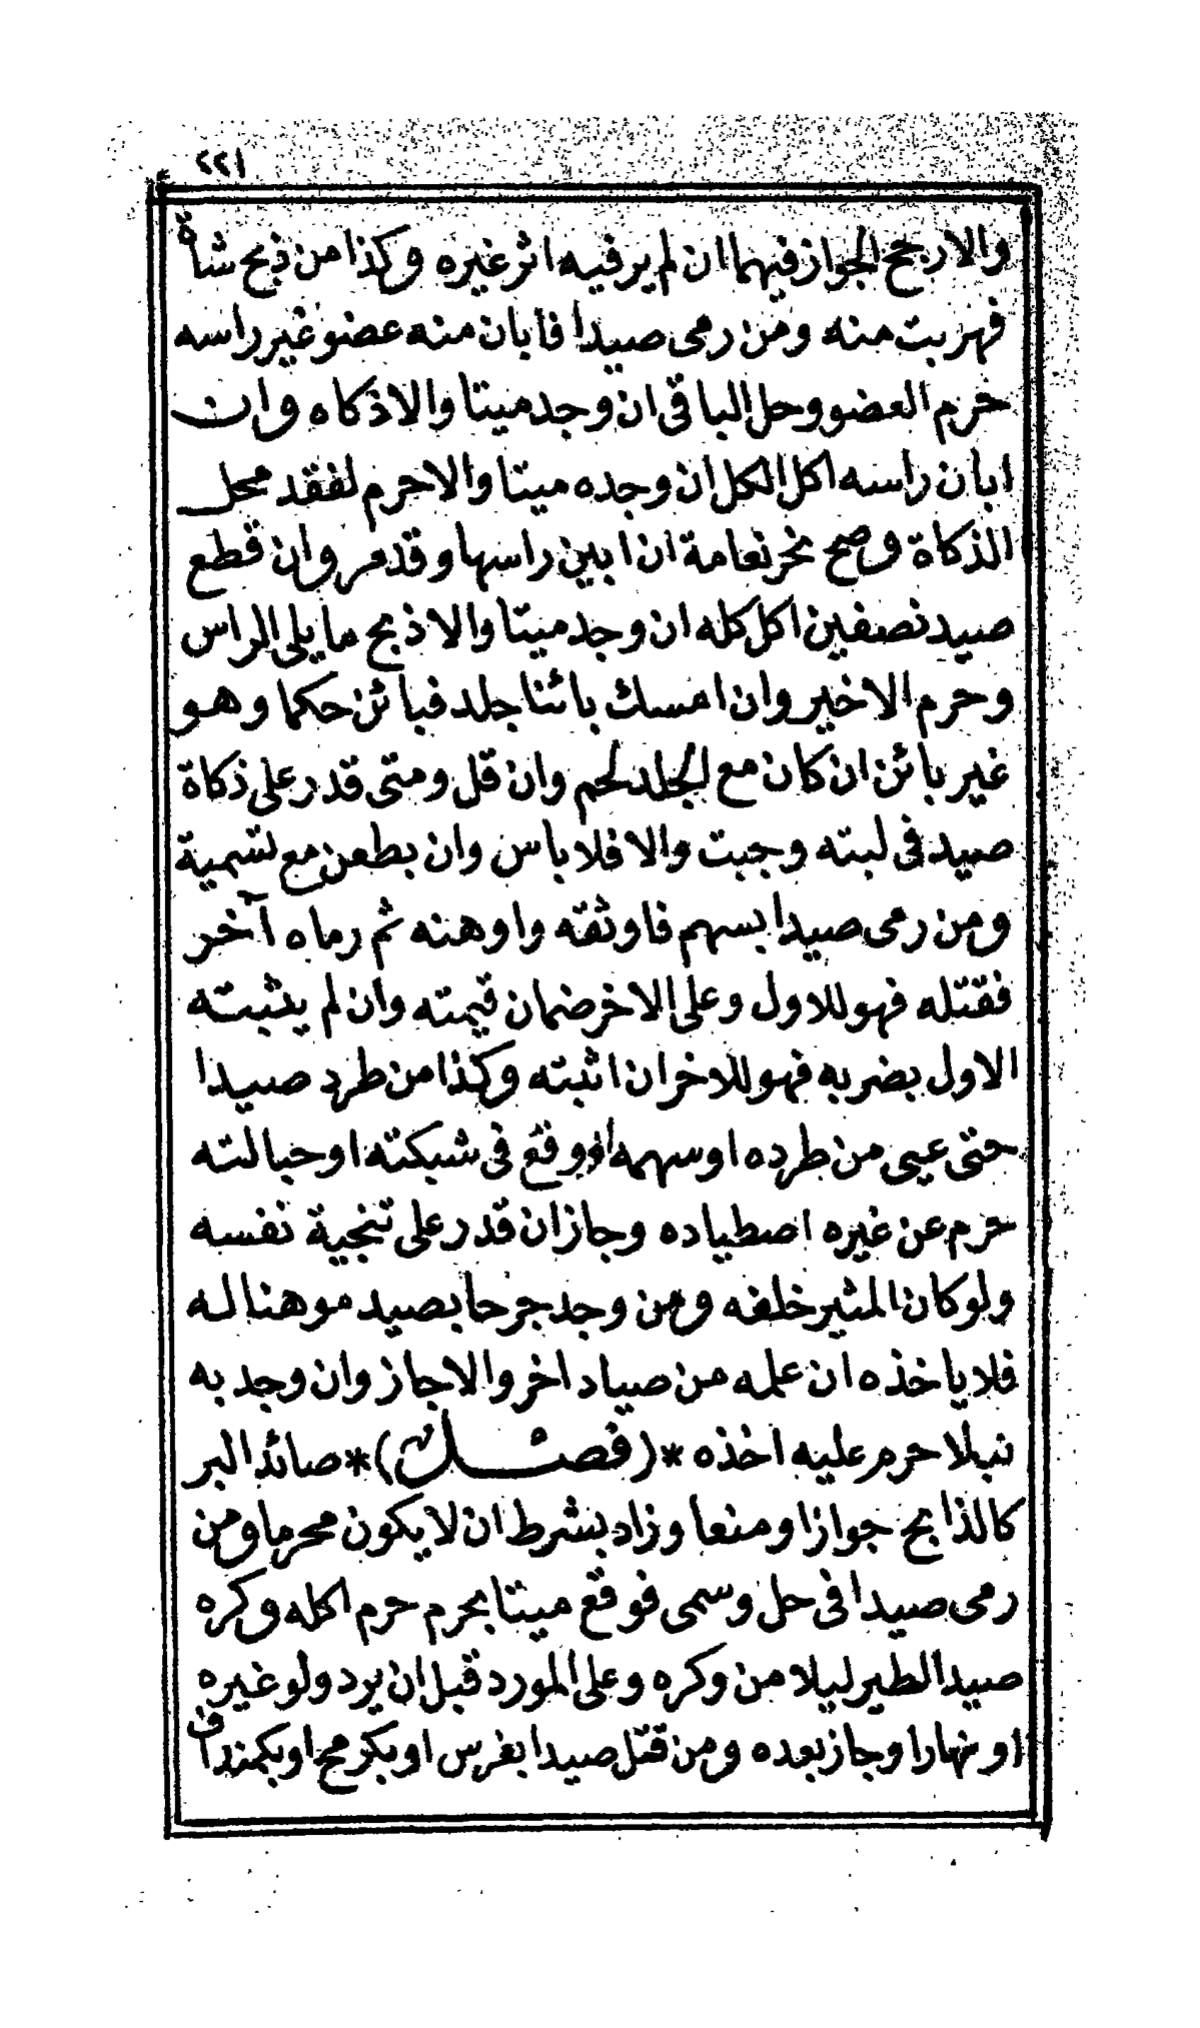 ٢٢١
والارجح الجواز فيهما ان لم ير فيه اثر غيره وكذا من ذبح شاة
فهربت منه ومن رمى صيدا فابان منه عضو غير راسه
حرم العضو وحل الباقى ان وجد ميتا والا ذكاه وان
ابان راسه اكل الكل ان وجده ميتا والا حرم لفقد محل
الذكاة وصح نحر نعامة ان ابين راسها وقد مر وان قطع
صيد نصفين اكل كله ان وجد ميتا والا ذبح ما يلى الراس
وحرم الاخير وان امسك بائنا جلد فبائن حكما وهو
غير بائن ان كان مع الجلد لحم وان قل ومتى قدر على ذكاة
صيد فى لبته وجبت والا فلا باس وان بطعن مع تسمية
ومن رمى صيدا بسهم فاوثقه واوهنه ثم رماه آخر
فقتله فهو للاول وعلى الاخر ضمان قيمته وان لم يثبته
الاول بضربه فهو للاخر ان اثبته وكذا من طرد صيدا
حتى عيى من طرده او سهمه او وقع فى شبكته او حبالته
حرم عن غيره اصطياده وجاز ان قدر على تنجية نفسه
ولو كان المثير خلفه ومن وجد جرحا بصيد موهنا له
فلا ياخذه ان علمه من صياد اخر والا جاز وان وجد به
نبلا حرم عليه اخذه *(فصل)* صائد البر
كالذابح جوازا ومنعا وزاد بشرط ان لا يكون محرما ومن
رمى صيدا فى حل وسمى فوقع ميتا بحرم حرم اكله وكره
صيد الطير ليلا من وكره وعلى المورد قبل ان يرد ولو غيره
او نهارا وجاز بعده ومن قتل صيدا بفرس او بكرمح او بكمنداف